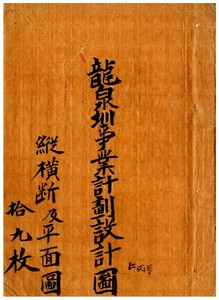 龍泉圳爭業計劃設計圖
縱橫斷及平面圖
拾九枚